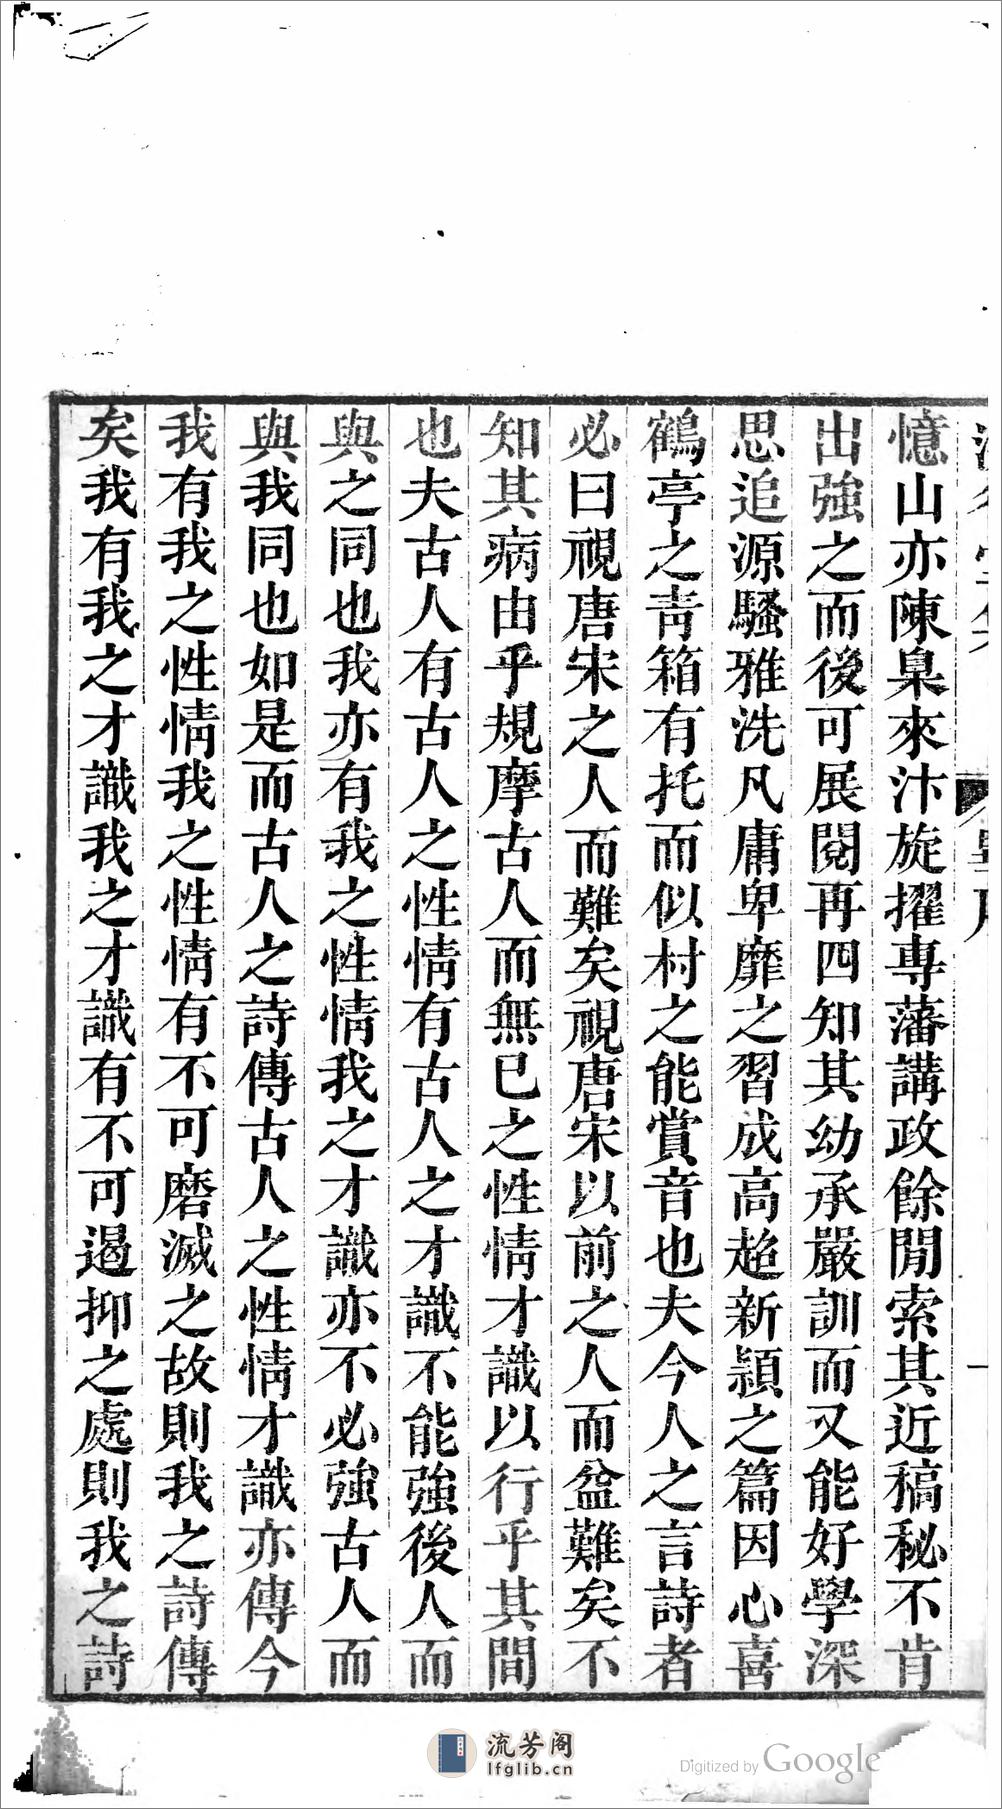 憶山亦陳臬來汴旋擢專藩講政餘閒索其近稿秘不肯
出強之而後可展閱再四知其幼承嚴訓而又能好學深
思追源騷雅洗凡庸卑靡之習成高超新穎之篇因心喜
鶴亭之靑箱有托而似村之能賞音也夫今人之言詩者
必曰視唐宋之人而難矣視唐宋以前之人而益難矣不
知其病由乎規摩古人而無已之性情才識以行乎其間
也夫古人有古人之性情有古人之才識不能強後人而
與之同也我亦有我之性情我之才識亦不必強古人而
與我同也如是而古人之詩傳古人之性情才識亦傳今
我有我之性情我之性情有不可磨滅之故則我之詩傳
矣我有我之才識我之才識有不可遏抑之處則我之詩
流芳阁
lfglib.cn
Digitized by Google